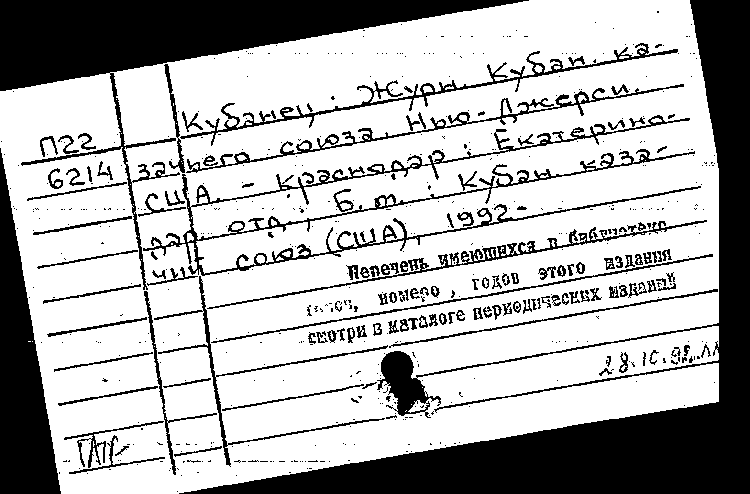 Кубанец : Журн. Кубан. ка-
П22
6214 зачьего союза. Нью-Джерси.
США. - Краснодар : Екатерино-
дар. отд. ; Б.м. : Кубан. каза-
чий союз (США), 1992-
Перечень имеющихся в библиотеке
номеро, годов этого издания
смотри в каталоге периодических изданий
28.10.92